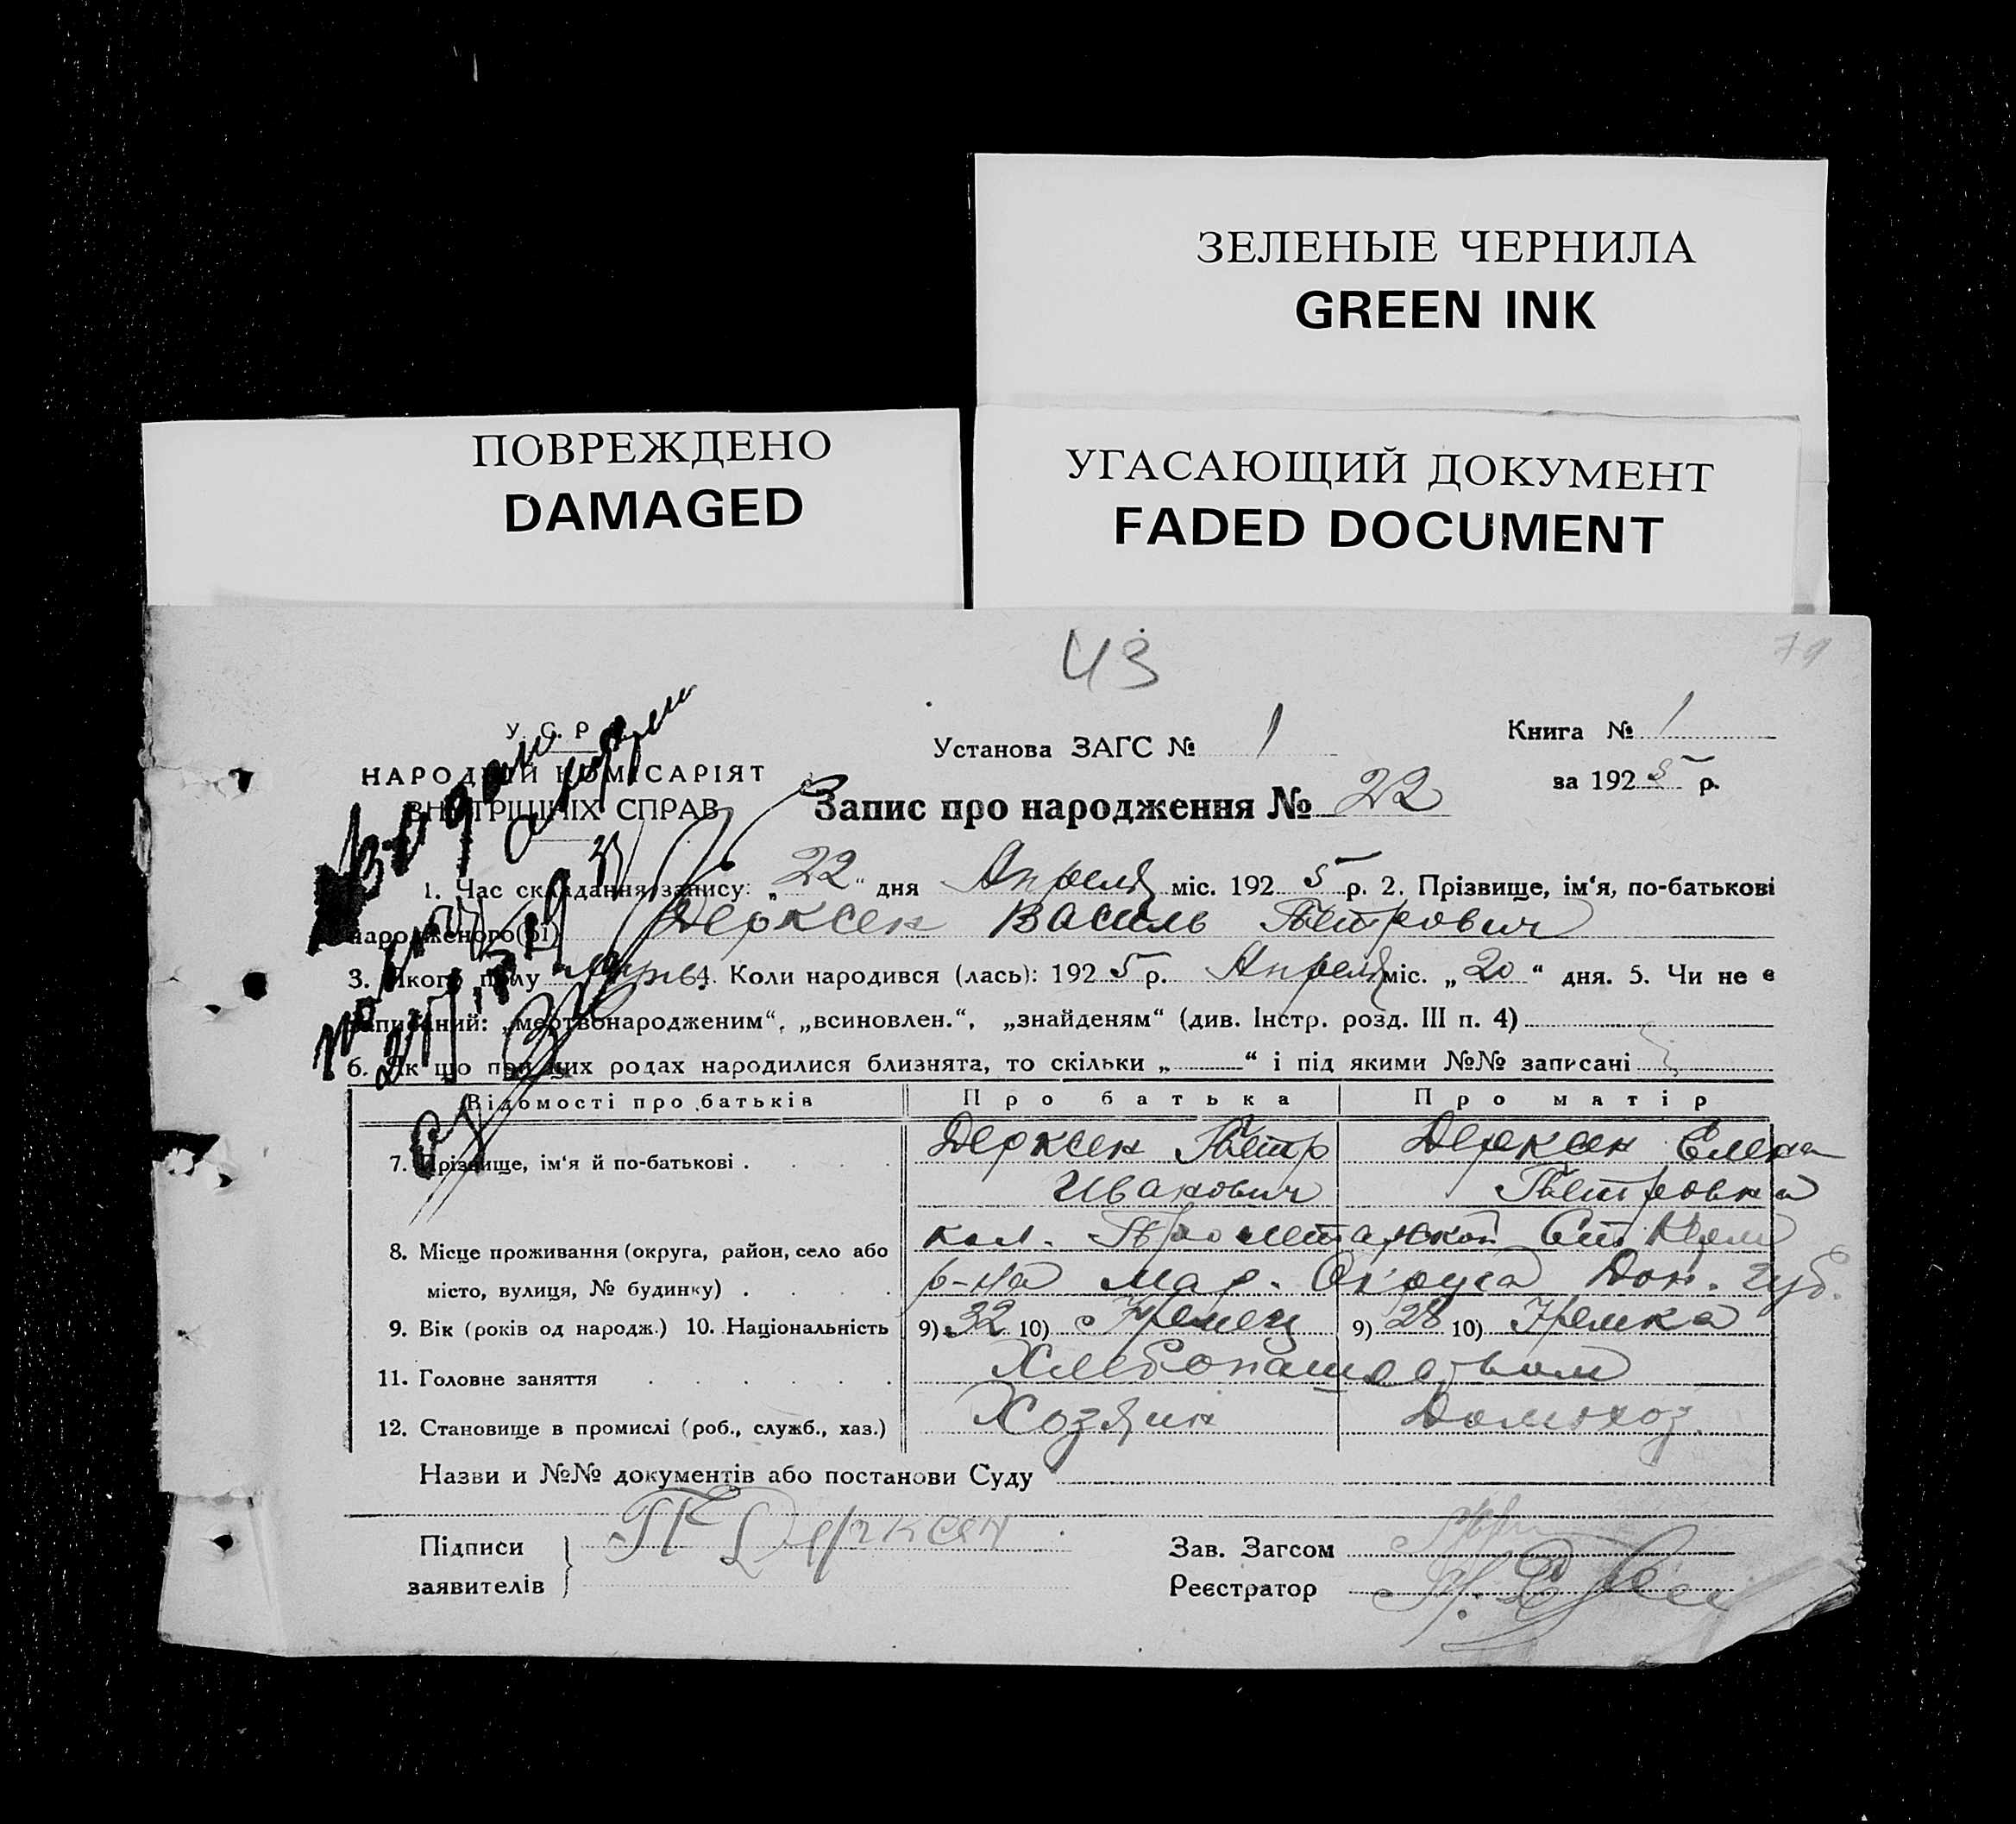 ЗЕЛЕНЫЕ ЧЕРНИЛА
GREEN INK
ПОВРЕЖДЕНО
DAMAGED
УГАСАЮЩИЙ ДОКУМЕНТ
FADED DOCUMENT
43
79
У. С. Р.
НАРОДНІЙ КОМІСАРІЯТ
ВНУТРІШНІХ СПРАВ
Установа ЗАГС № 1
Книга № 1
за 1925 р.
Запис про народження № 22
1. Час складання запису: „22“ дня Апреля міс. 1925 р. 2. Прізвище, ім‘я, по-батькові
народженого(ої) Дерксен Василь Петрович
3. Якого полу 4. Коли народився (лась): 1925 р. Апреля міс. „20“ дня. 5. Чи не є
записаний: „мертвонародженим“, „всиновлен.“, „знайденям“ (див. Інстр. розд. III п. 4)
6. Як що при цих родах народилися близнята, то скільки „ “ і під якими №№ записані
Відомості про батьків Про батька Про матір
7. Прізвище, ім‘я й по-батькові Дерксен Петр Дерксен Елена
Иванович Петровна
8. Місце проживання (округа, район, село або кол.
місто, вулиця, № будинку) р-на Мар. Округа Дон. губ.
9. Вік (років од народж.) 10. Національність 9) 32 10) Немец 9) 28 10) Немка
11. Головне заняття Хлебопашеством
12. Становище в промислі (роб., служб., хаз.) Хозяин Домохоз.
Назви и №№ документів або постанови Суду
Підписи П Дерксен
заявителів
Зав. Загсом
Реєстратор